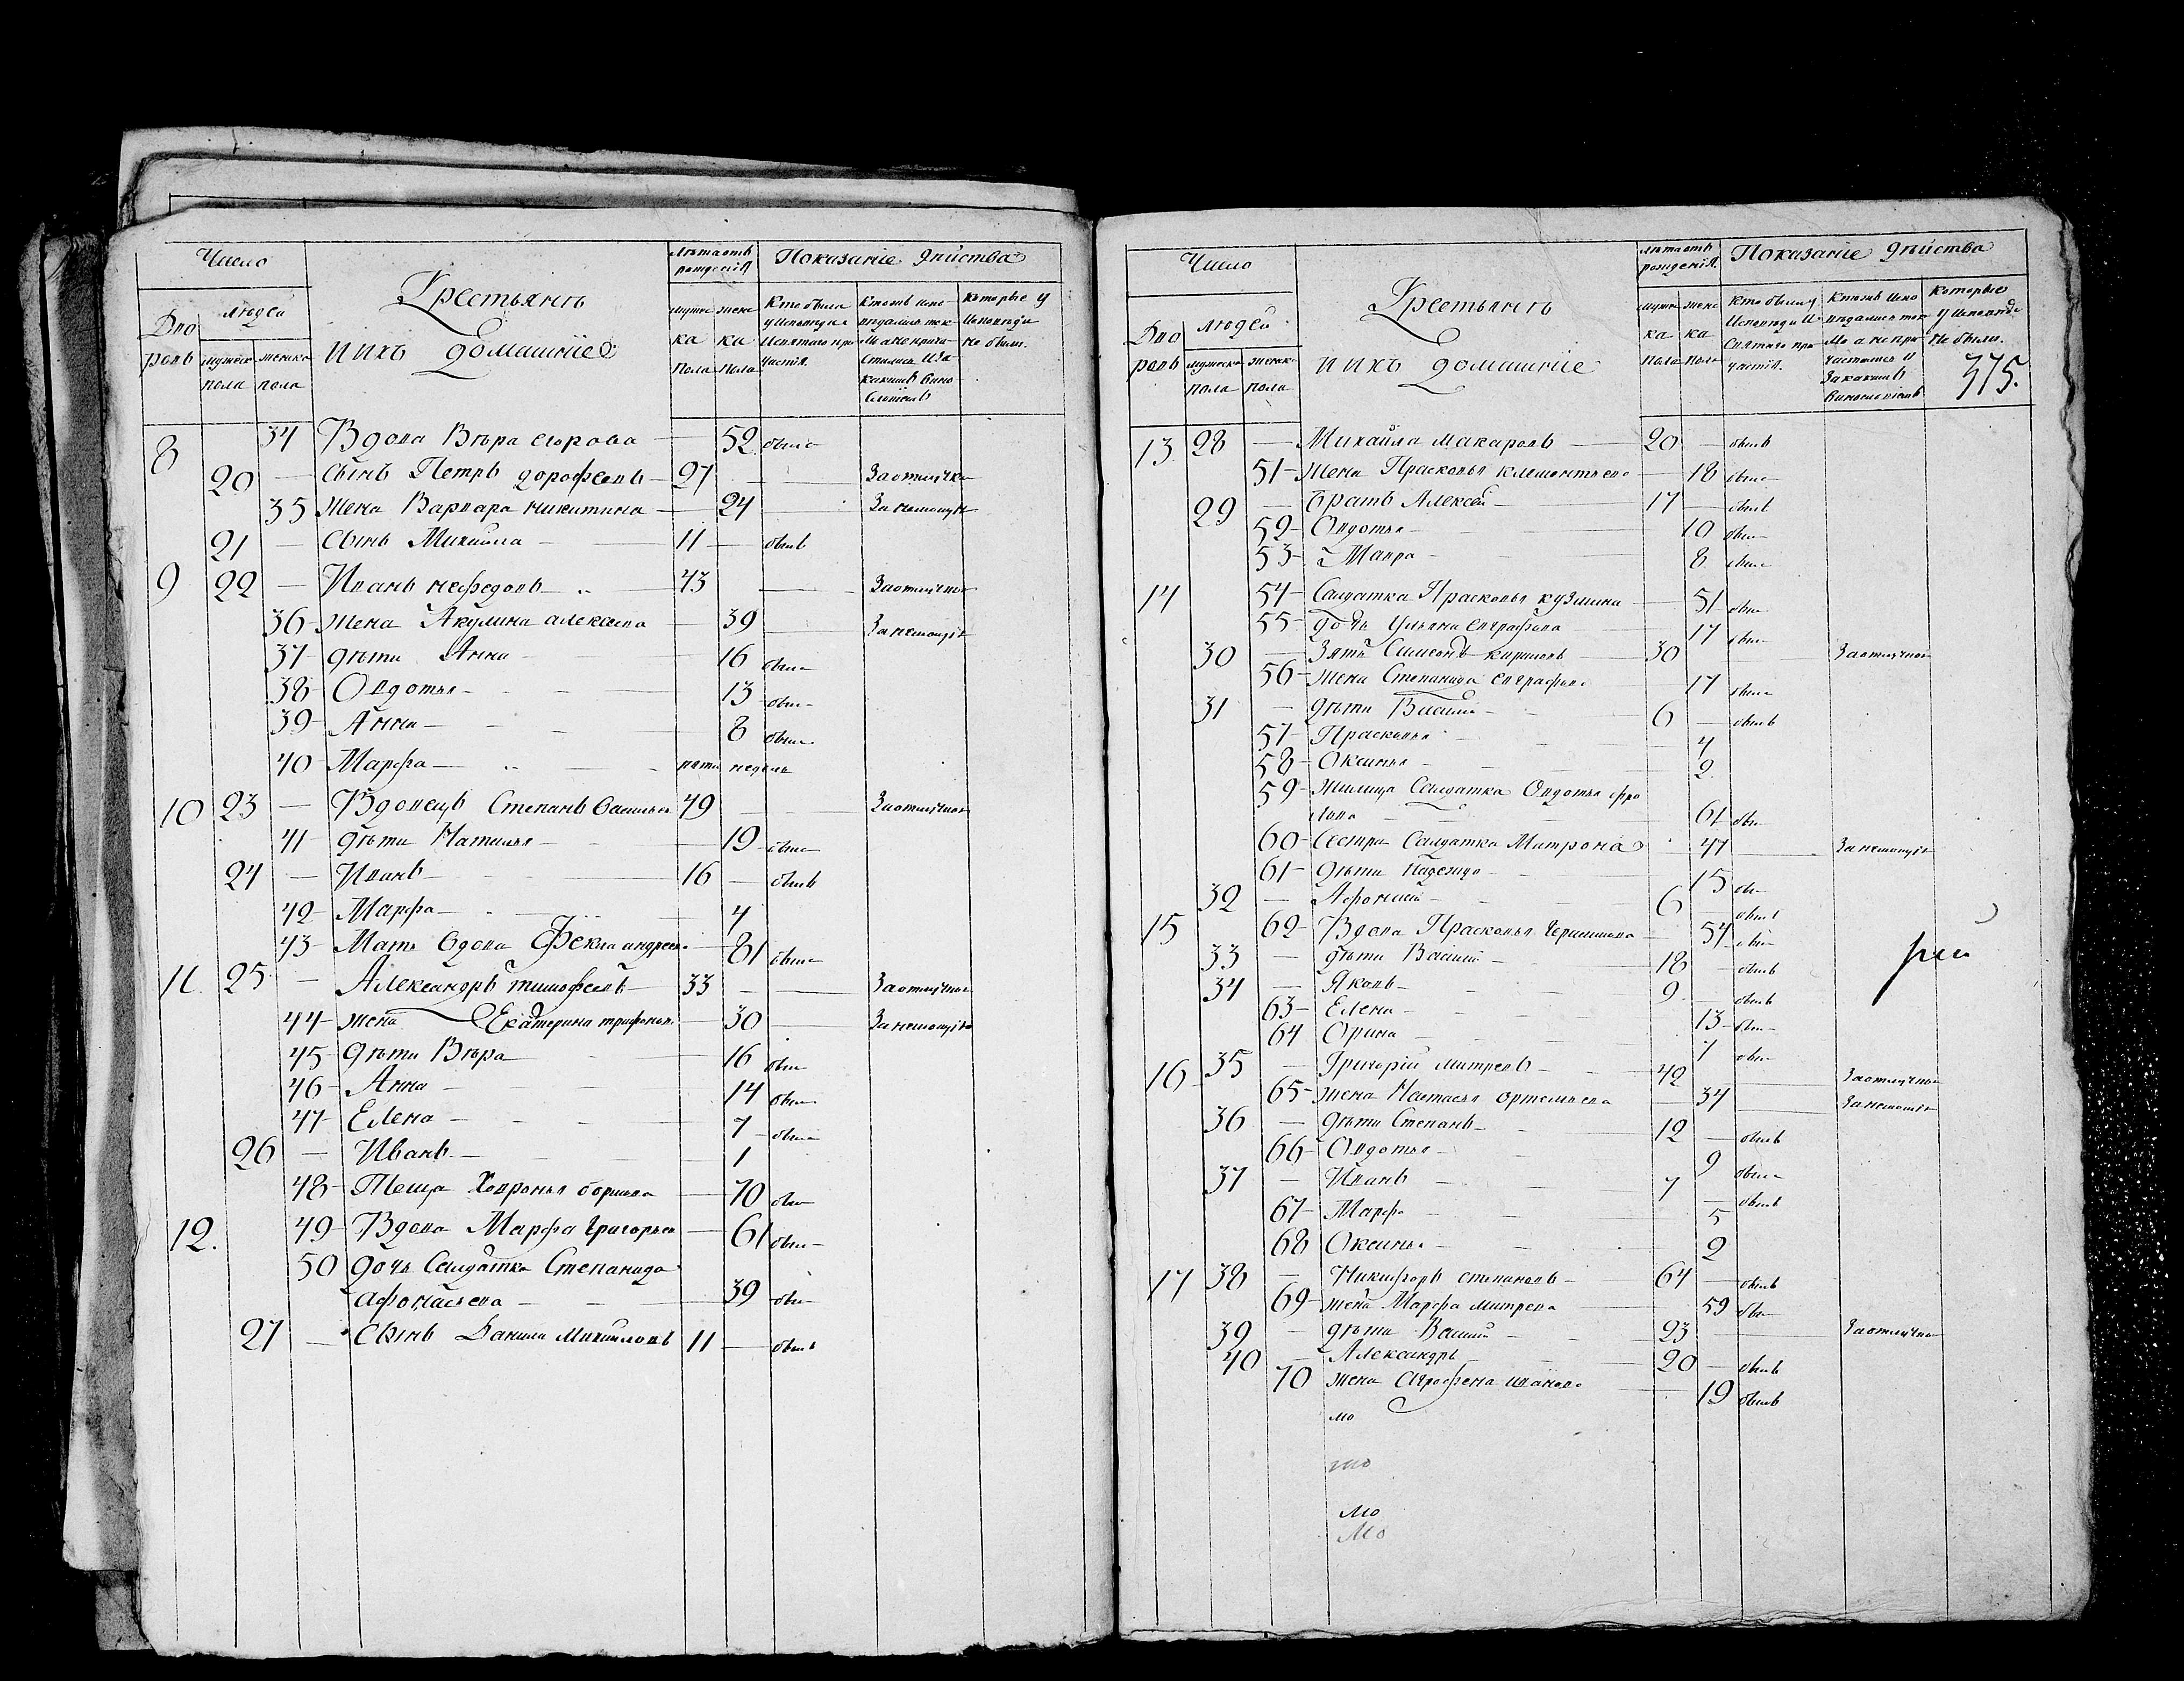 Число
Крестьянъ
Лѣта отъ рожденія
Показаніе дѣйства
Дворовъ
людей
и ихъ домашніе
мужеска пола
женска пола
мужеска пола
женска пола
Кто были у исповеди и святаго причастія.
Которые у исповеди не были.
8 34 Вдова Вѣра егорова 52 была
20 — сынъ Петръ дорофеевъ 27 — За отлучкою
35 жена Варвара никитина — 24 За немощію
21 — сынъ Михайла — 11 — былъ
9 22 — Иванъ нефедовъ 43 — За отлучкою
36 жена Акулина алексеева — 39 За немощію
37 дѣти Анна 16 была
38 Овдотья 13 была
39 Анна 8 была
40 Марфа — пять недель
10 23 — Вдовецъ Степанъ васильевъ 49 — За отлучкою
41 дѣти Наталья — 19 была
24 — Иванъ 16 — былъ
42 Марфа — 4
43 Мать вдова Фекла андреева 81 была
11 25 — Александръ тимофеевъ 33 — За отлучкою
44 жена Екатерина трифонова 30 За немощію
45 дѣти Вѣра 16 была
46 Анна — 14 была
47 Елена — 7 была
26 — Иванъ 1
48 Теща Ховронья борисова 70 была
12. 49 Вдова Марфа григорьева 61 была
50 дочь Салдатка Степанида
афонасьева — 39 была
27 — сынъ Данила Михайловъ 11 — былъ
Число
Крестьянъ
Лѣта отъ рожденія.
Показаніе дѣйства
Дворовъ
людей
и ихъ домашніе
мужеска пола
женска пола
мужеска пола
женска пола
Кто были у исповеди и святаго причастія.
Которые у исповеди не были.
375.
13 28 — Михайла макаровъ 20 — былъ
51 жена Прасковья клементьева 18 была
29 — братъ Алексей 17 — былъ
52 Овдотья 10 была
53 Мавра 8 была
14 54 Салдатка Прасковья кузмина 51 была
55 дочь Ульяна евграфова 17 была
30 — Зять Симеонъ кириловъ 30 За отлучкою
56 жена Степанида евграфова 17 была
31 — дѣти Василей 6 — былъ
57 Прасковья 4
58 Оксинья 2
59 Жилица Салдатка Овдотья фро
лова 61 была
60 Сестра Салдатка Матрона 47 За немощію
61 дѣти Надежда 15 была
32 — Афонасей 6 — былъ
15 62 Вдова Прасковья 54 была
33 — дѣти Василей 18 — былъ
34 — Яковъ 9 — былъ
63 Елена 13 была
64 Орина 7 была
16 35 — Григорій митревъ 42 За отлучкою
65 жена Настасья ортемьева 34 За немощію
36 — дѣти Степанъ 12 — былъ
66 Овдотья 9 была
37 — Иванъ 7 — былъ
67 Марфа 5
68 Оксинья 2
17 38 — Никифоръ степановъ 64 — былъ
69 жена Марфа митрева 59 была
39 — дѣти Василей 23 За отлучкою
40 — Александръ 20 — былъ
70 жена Аграфена иванова 19 былъ
мо
мо
мо